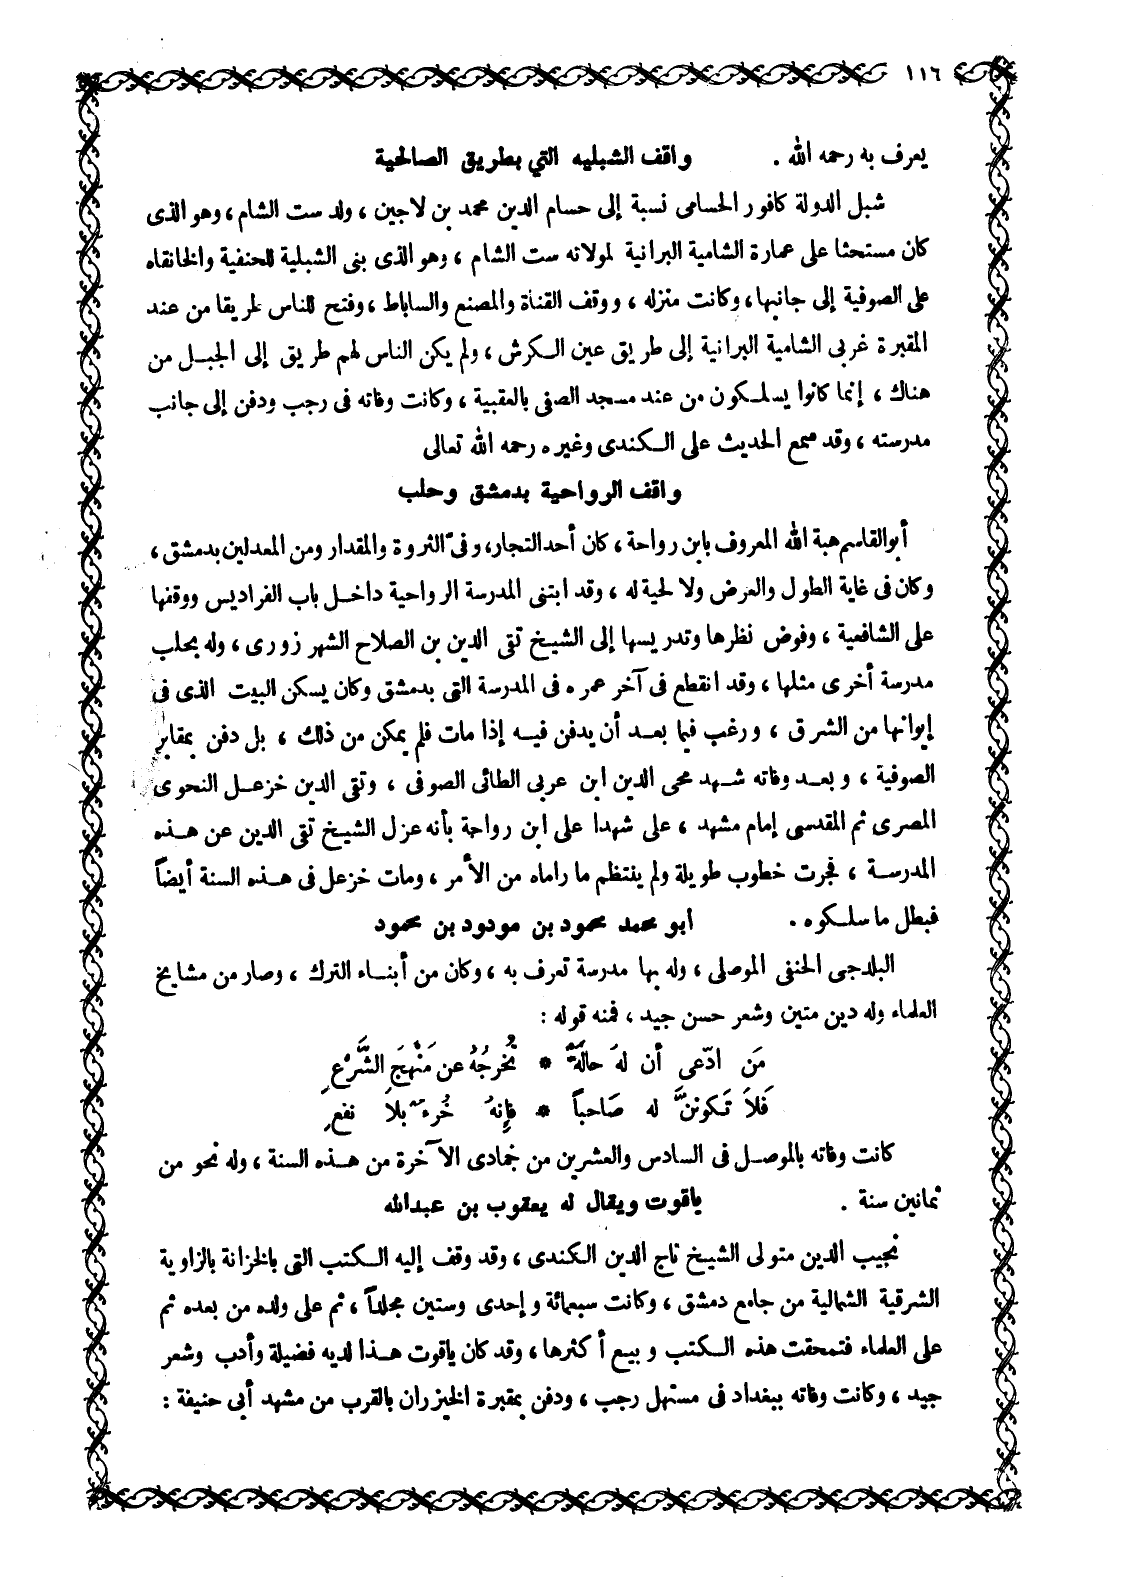 ١١٦
يعرف به رحمه الله . واقف الشبليه التي بطريق الصالحية
شبل الدولة كافور الحسامى نسبة إلى حسام الدين محمد بن لاجين ، ولد ست الشام ، وهو الذى
كان مستحثا على عمارة الشامية البرانية لمولاته ست الشام ، وهو الذى بنى الشبلية للحنفية والخانقاه
على الصوفية إلى جانبها ، وكانت منزله ، ووقف القناة والمصنع والساباط ، وفتح للناس طريقا من عند
المقبرة غربى الشامية البرانية إلى طريق عين الكرش ، ولم يكن الناس لهم طريق إلى الجبل من
هناك ، إنما كانوا يسلكون من عند مسجد الصفى بالعقبية ، وكانت وفاته فى رجب ودفن إلى جانب
مدرسته ، وقد سمع الحديث على الكندى وغيره رحمه الله تعالى
واقف الرواحية بدمشق وحلب
أبو القاسم هبة الله المعروف بابن رواحة ، كان أحد التجار ، وفى الثروة والمقدار ومن المعدلين بدمشق ،
وكان فى غاية الطول والعرض ولا لحية له ، وقد ابتنى المدرسة الرواحية داخل باب الفراديس ووقفها
على الشافعية ، وفوض نظرها وتدريسها إلى الشيخ تقى الدين بن الصلاح الشهرزورى ، وله بحلب
مدرسة أخرى مثلها ، وقد انقطع فى آخر عمره فى المدرسة التى بدمشق وكان يسكن البيت الذى فى
إيوانها من الشرق ، ورغب فيما بعد أن يدفن فيه إذا مات فلم يمكن من ذلك ، بل دفن بمقابر
الصوفية ، وبعد وفاته شهد محى الدين ابن عربى الطائى الصوفى ، وتقى الدين خزعل النحوى
المصرى ثم المقدسى إمام مشهد ، على شهدا على ابن رواحة بأنه عزل الشيخ تقى الدين عن هذه
المدرسة ، فجرت خطوب طويلة ولم ينتظم ما راماه من الأمر ، ومات خزعل فى هذه السنة أيضاً
فبطل ما سلكوه . ابو محمد محمود بن مودود بن محمود
البلدجى الحنفى الموصلى ، وله بها مدرسة تعرف به ، وكان من أبناء الترك ، وصار من مشايخ
العلماء وله دين متين وشعر حسن جيد ، فمنه قوله :
مَن ادّعى أن لهَ حالةً * تُخرجُهُ عن مَنْهَجِ الشَّرْعِ
فَلاَ تَكوننَّ له صَاحباً * فإنهُ خُرءٌ بلاَ نفعِ
كانت وفاته بالموصل فى السادس والعشرين من جمادى الآخرة من هذه السنة ، وله نحو من
ثمانين سنة . ياقوت ويقال له يعقوب بن عبدالله
نجيب الدين متولى الشيخ تاج الدين الكندى ، وقد وقف إليه الكتب التى بالخزانة بالزاوية
الشرقية الشمالية من جامع دمشق ، وكانت سبعمائة وإحدى وستين مجلداً ، ثم على ولده من بعده ثم
على العلماء فتمحقت هذه الكتب وبيع أكثرها ، وقد كان ياقوت هذا لديه فضيلة وأدب وشعر
جيد ، وكانت وفاته ببغداد فى مستهل رجب ، ودفن بمقبرة الخيزران بالقرب من مشهد أبى حنيفة :